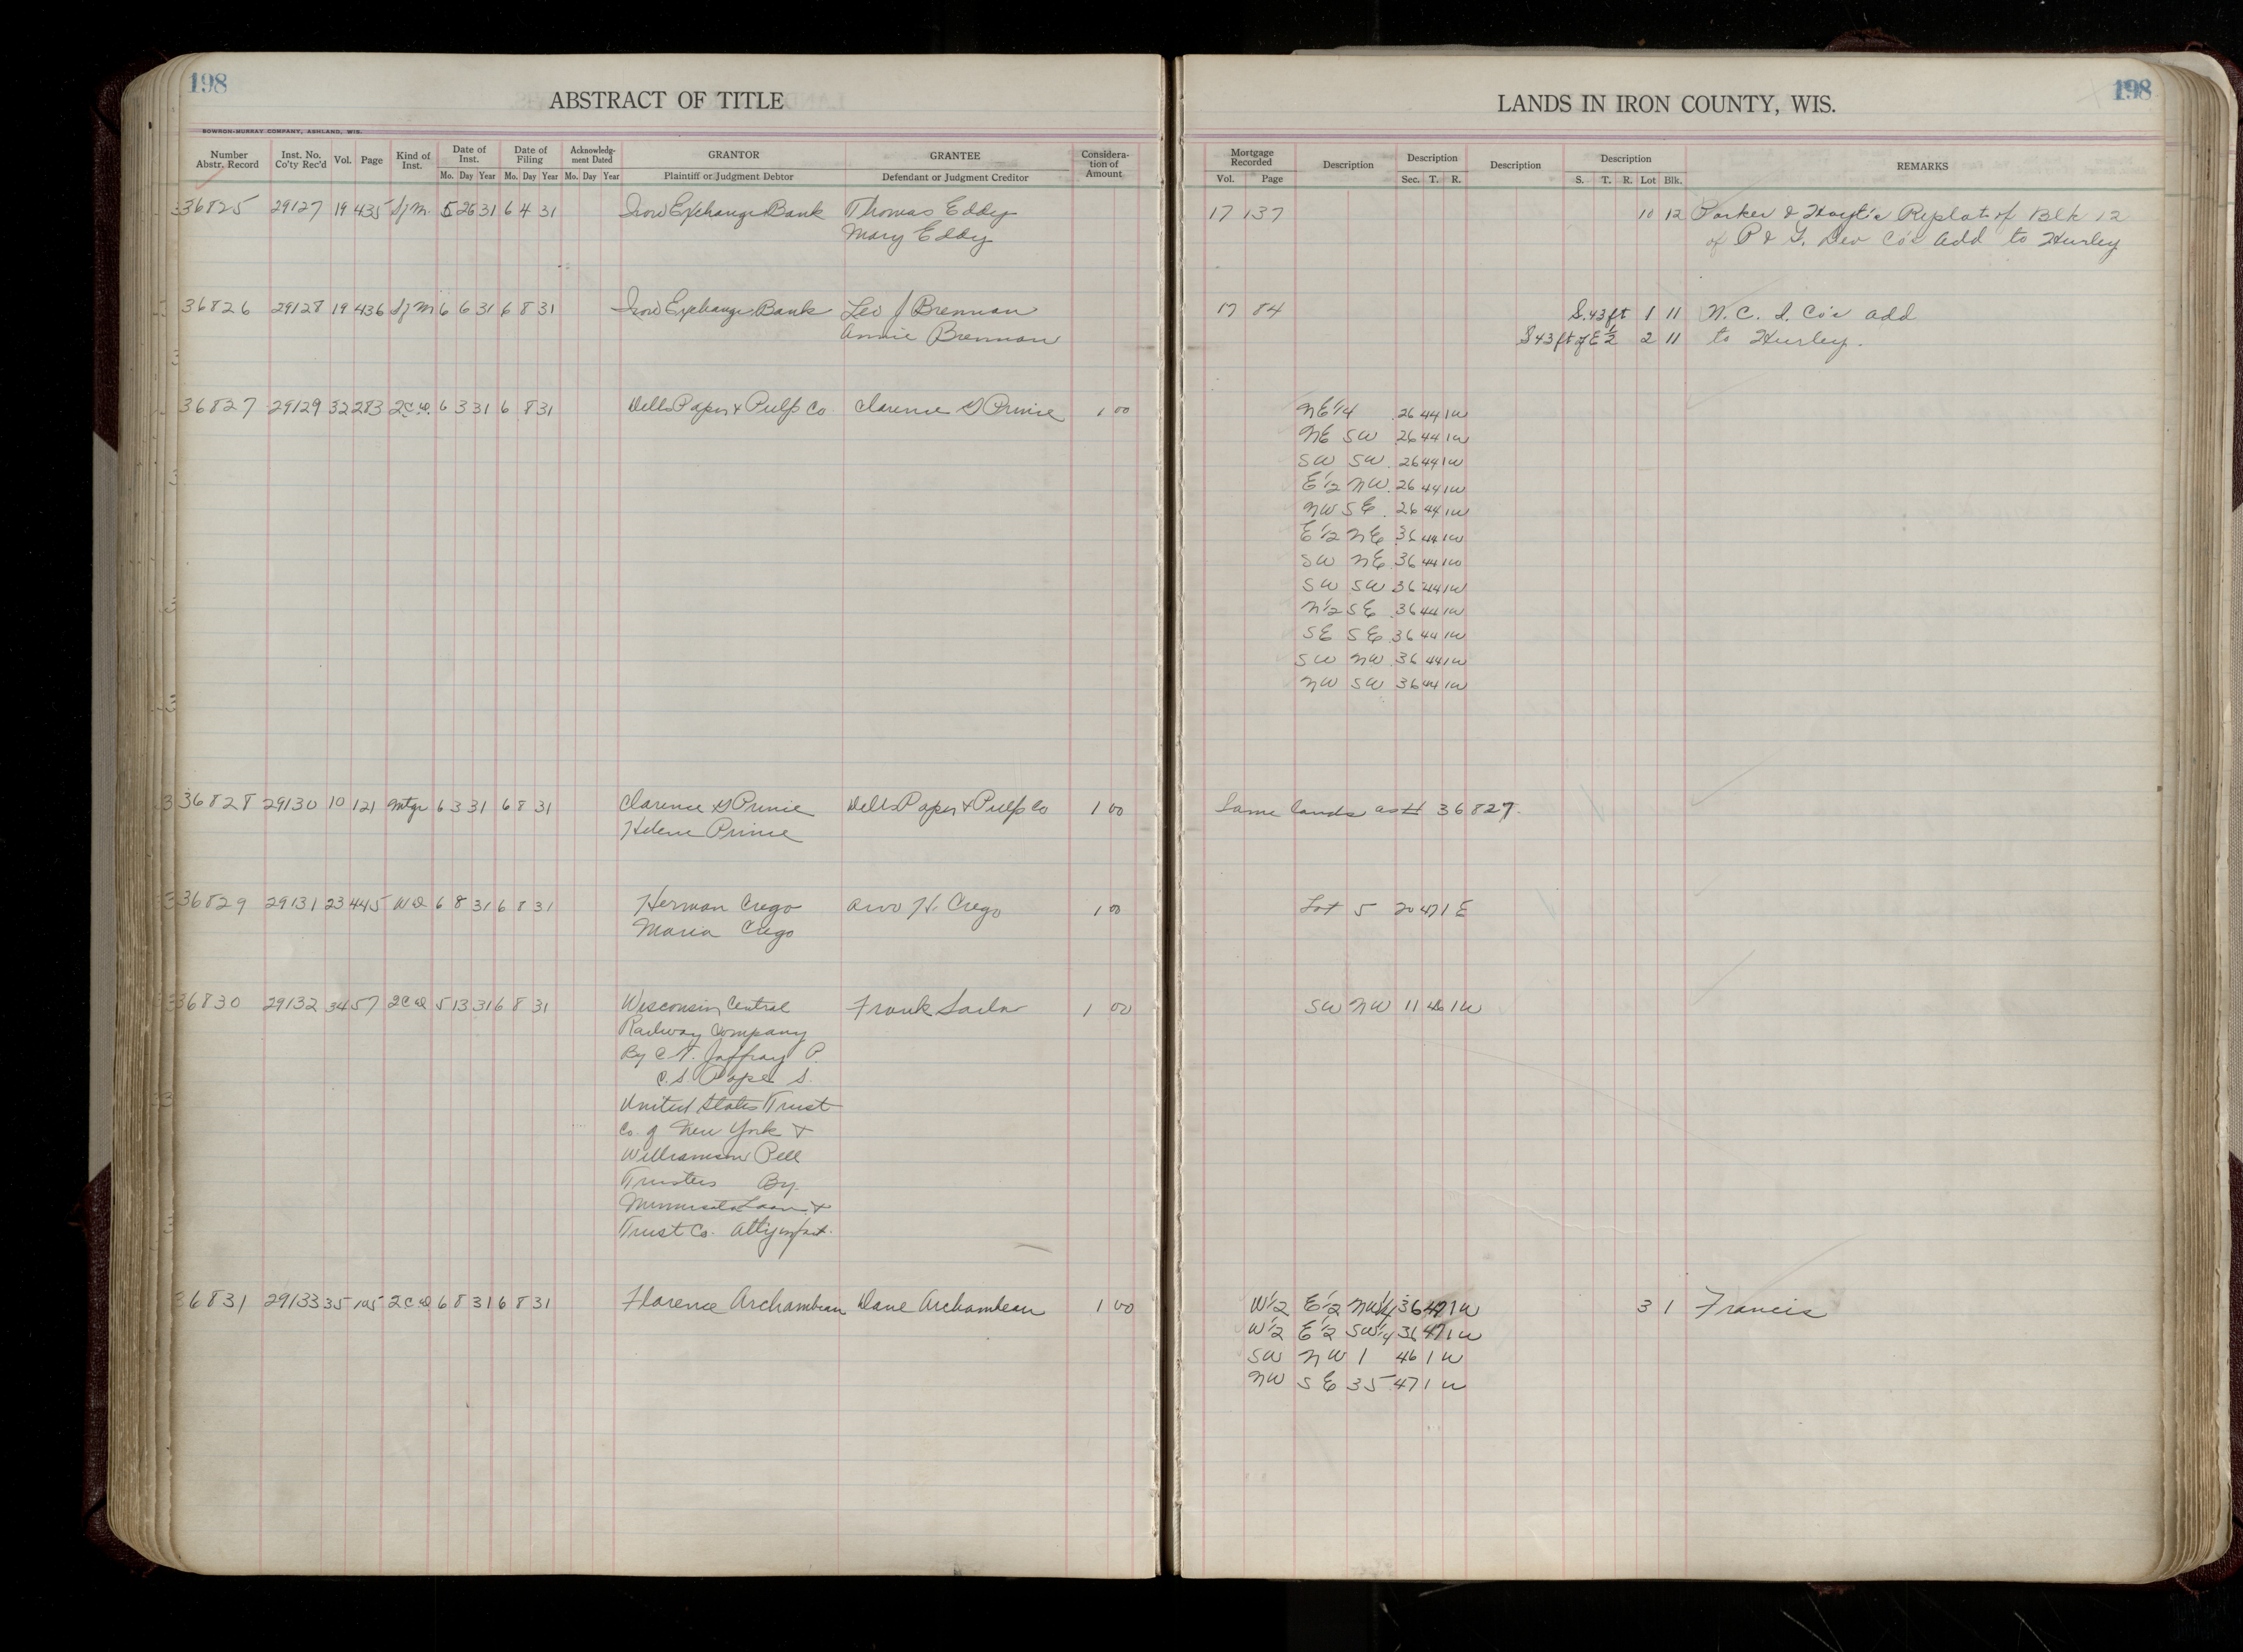 198
ABSTRACT OF TITLE
BOWRON-MURRAY COMPANY, ASHLAND, WIS.
LANDS IN IRON COUNTY, WIS.
198
Number Abstr. Record Inst. No. Co'ty Rec'd Vol. Page Kind of Inst. Date of Inst. Mo. Day Year Date of Filing Mo. Day Year Acknowledgment Dated Mo. Day Year GRANTOR Plaintiff or Judgment Debtor GRANTEE Defendant or Judgment Creditor Consideration of Amount
Mortgage Recorded Vol. Page Description Description Sec. T. R. Description Description S. T. R. Lot Blk. REMARKS
36825 29127 19 435 S/M. 5 26 31 6 4 31 Iron Exchange Bank Thomas Eddy 17 137 10 12 Parker & Hoyt's Replat of Blk 12
Mary Eddy of P & G. Dev Co's Add to Hurley
36826 29128 19 436 S/M 6 6 31 6 8 31 Iron Exchange Bank Leo J Brennan 17 84 S.43ft 1 11 N. C. I. Co's add
Annie Brennan S43ft of E½ 2 11 to Hurley.
36827 29129 32 283 2CD. 6 3 31 6 8 31 Dells Paper & Pulp Co Clarence G Prince 1 00 NE¼ 26 44 1W
NE SW 26 44 1W
SW SW 26 44 1W
E½ NW 26 44 1W
NW SE 26 44 1W
E½ NE 36 44 1W
SW NE 36 44 1W
SW SW 36 44 1W
N½ SE 36 44 1W
SE SE 36 44 1W
SW NW 36 44 1W
NW SW 36 44 1W
36828 29130 10 121 Mtge 6 3 31 6 8 31 Clarence G Prince Dells Paper & Pulp Co 1 00 Same lands as # 36827.
Helene Prince
36829 29131 23 445 WD 6 8 31 6 8 31 Herman Crego Arvo H. Crego 1 00 Lot 5 20 47 1E
Maria Crego
36830 29132 34 57 2CD 5 13 31 6 8 31 Wisconsin Central Frank 1 00 SW NW 11 46 1W
Railway Company
By C T. Jaffray P.
C.S. Pope S.
United States Trust
Co. of New York &
Williamson Pell
Trustees By.
Minnesota Loan &
Trust Co. Atty in fact.
36831 29133 35 105 2CD 6 8 31 6 8 31 Florence Archambeau Dave Archambeau 1 00 W½ E½ NW¼ 36 47 1W 3 1 Francis
W½ E½ SW¼ 36 47 1W
SW NW 1 46 1W
NW SE 35 47 1W